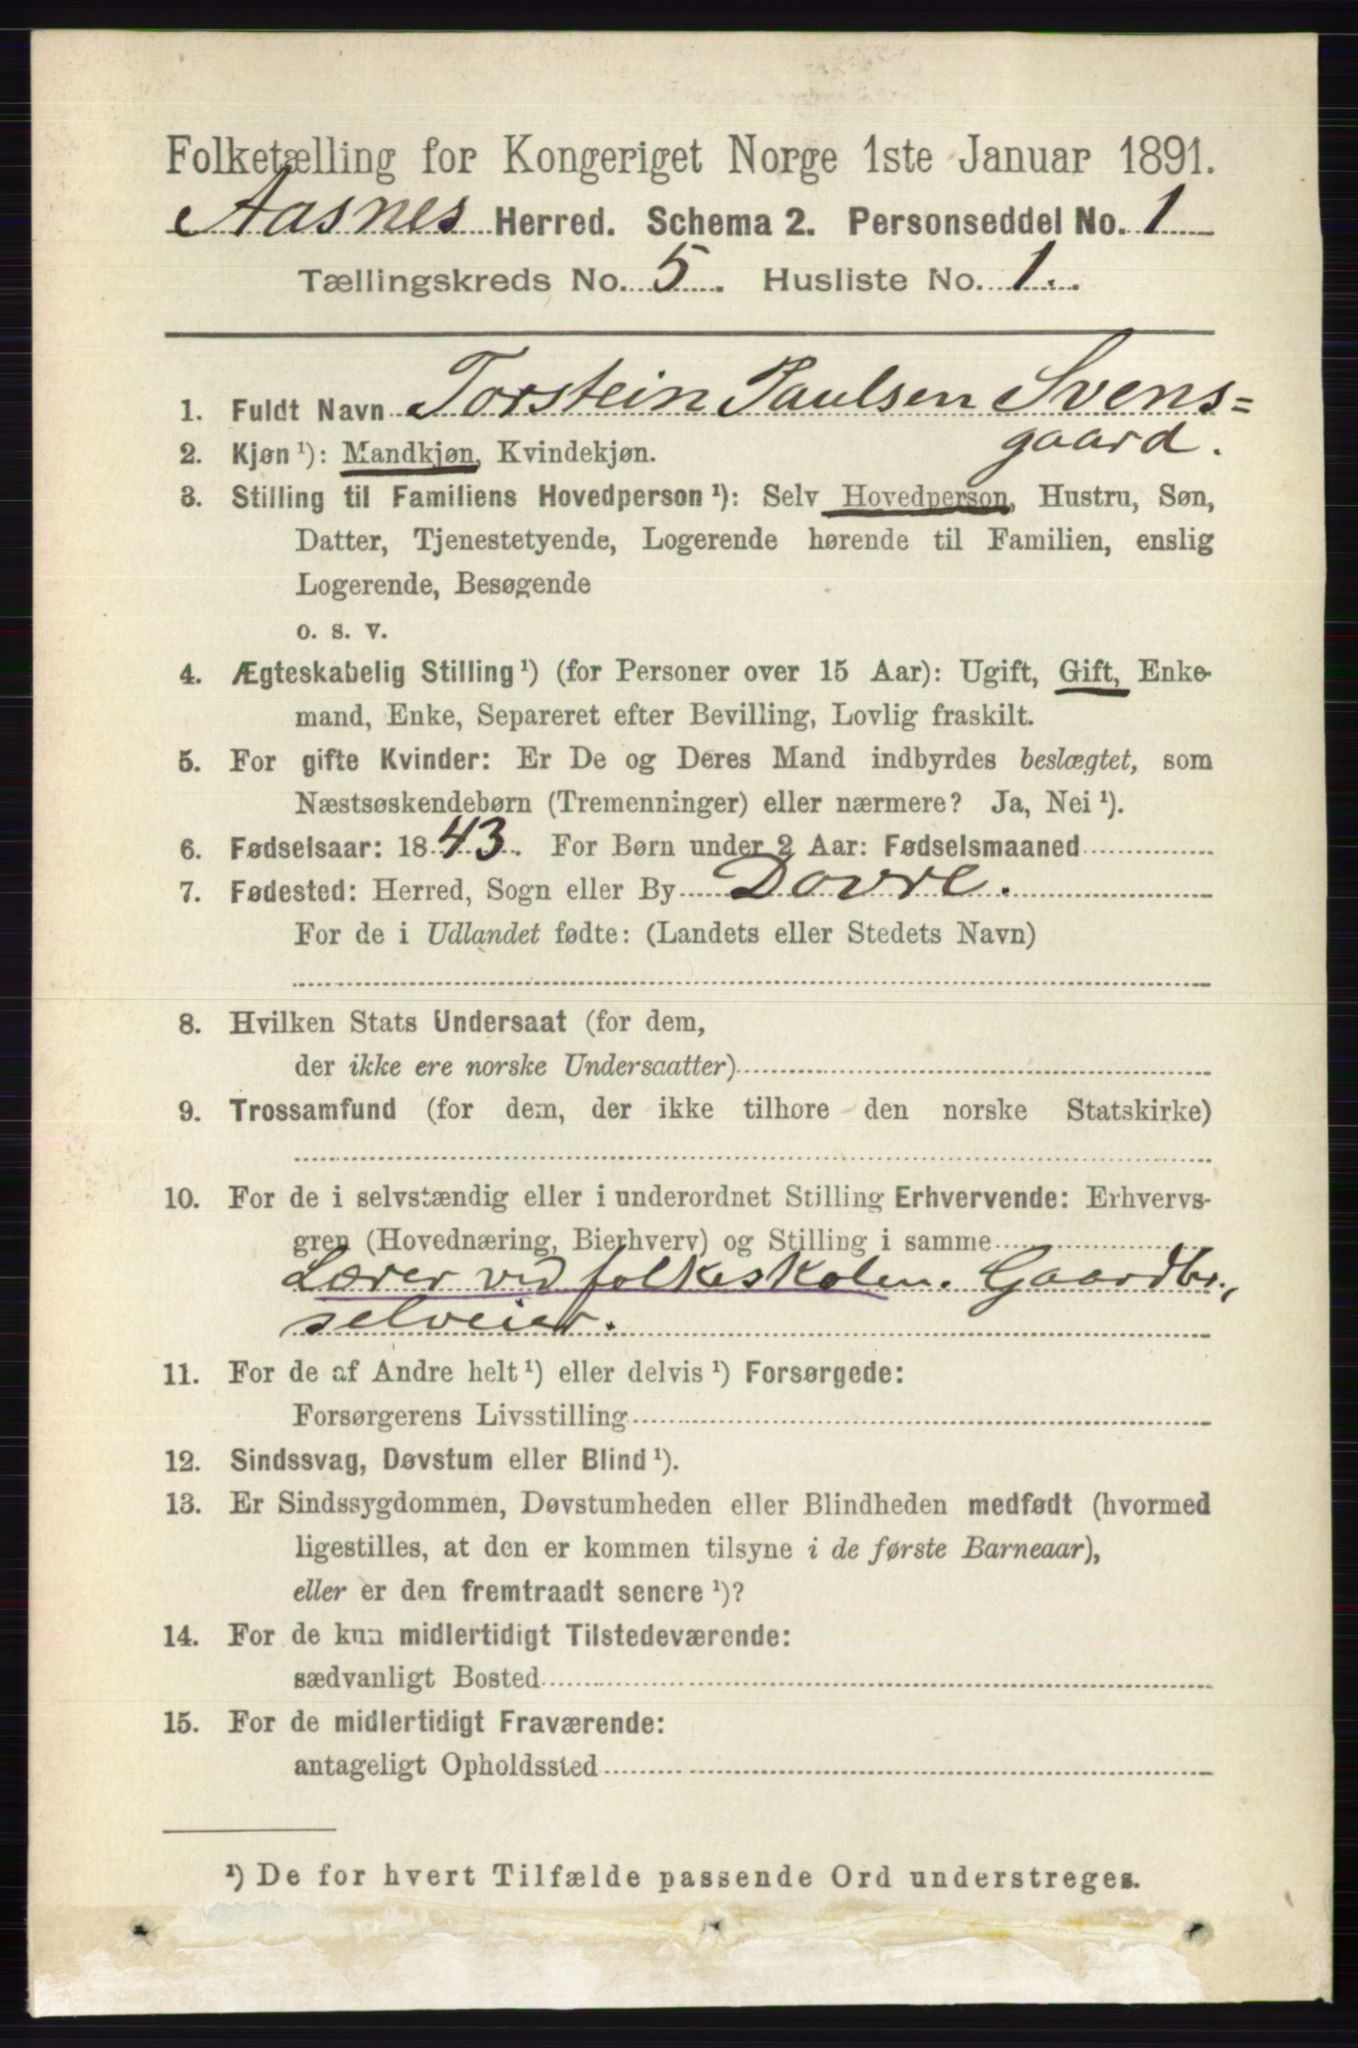 Folketælling for Kongeriget Norge 1ste Januar 1891.
Aasnes Herred. Schema 2. Personseddel No. 1
Tællingskreds No. 5. Husliste No. 1.
1. Fuldt Navn Torstein Paulsen Svens=
gaard.
2. Kjøn ¹): Mandkjøn, Kvindekjøn.
3. Stilling til Familiens Hovedperson ¹): Selv Hovedperson, Hustru, Søn,
Datter, Tjenestetyende, Logerende hørende til Familien, enslig
Logerende, Besøgende
o. s. v.
4. Ægteskabelig Stilling ¹) (for Personer over 15 Aar): Ugift, Gift, Enke-
mand, Enke, Separeret efter Bevilling, Lovlig fraskilt.
5. For gifte Kvinder: Er De og Deres Mand indbyrdes beslægtet, som
Næstsøskendebørn (Tremenninger) eller nærmere? Ja, Nei ¹).
6. Fødselsaar: 1843. For Børn under 2 Aar: Fødselsmaaned
7. Fødested: Herred, Sogn eller By Dovre.
For de i Udlandet fødte: (Landets eller Stedets Navn)
8. Hvilken Stats Undersaat (for dem,
der ikke ere norske Undersaatter)
9. Trossamfund (for dem, der ikke tilhøre den norske Statskirke)
10. For de i selvstændig eller i underordnet Stilling Erhvervende: Erhvervs-
gren (Hovednæring, Bierhverv) og Stilling i samme
Lærer ved folkeskolen. Gaardbr.,
selveier.
11. For de af Andre helt ¹) eller delvis ¹) Forsørgede:
Forsørgerens Livsstilling
12. Sindssvag, Døvstum eller Blind ¹).
13. Er Sindssygdommen, Døvstumheden eller Blindheden medfødt (hvormed
ligestilles, at den er kommen tilsyne i de første Barneaar),
eller er den fremtraadt senere ¹)?
14. For de kun midlertidigt Tilstedeværende:
sædvanligt Bosted
15. For de midlertidigt Fraværende:
antageligt Opholdssted
¹) De for hvert Tilfælde passende Ord understreges.